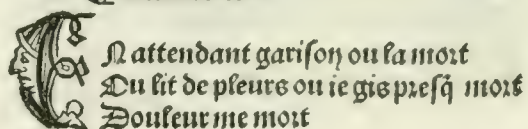 EN attendant gariſon ou la mort
Ou lit de pleurs ou ie gis preſq̃ mort
Douleur me mort